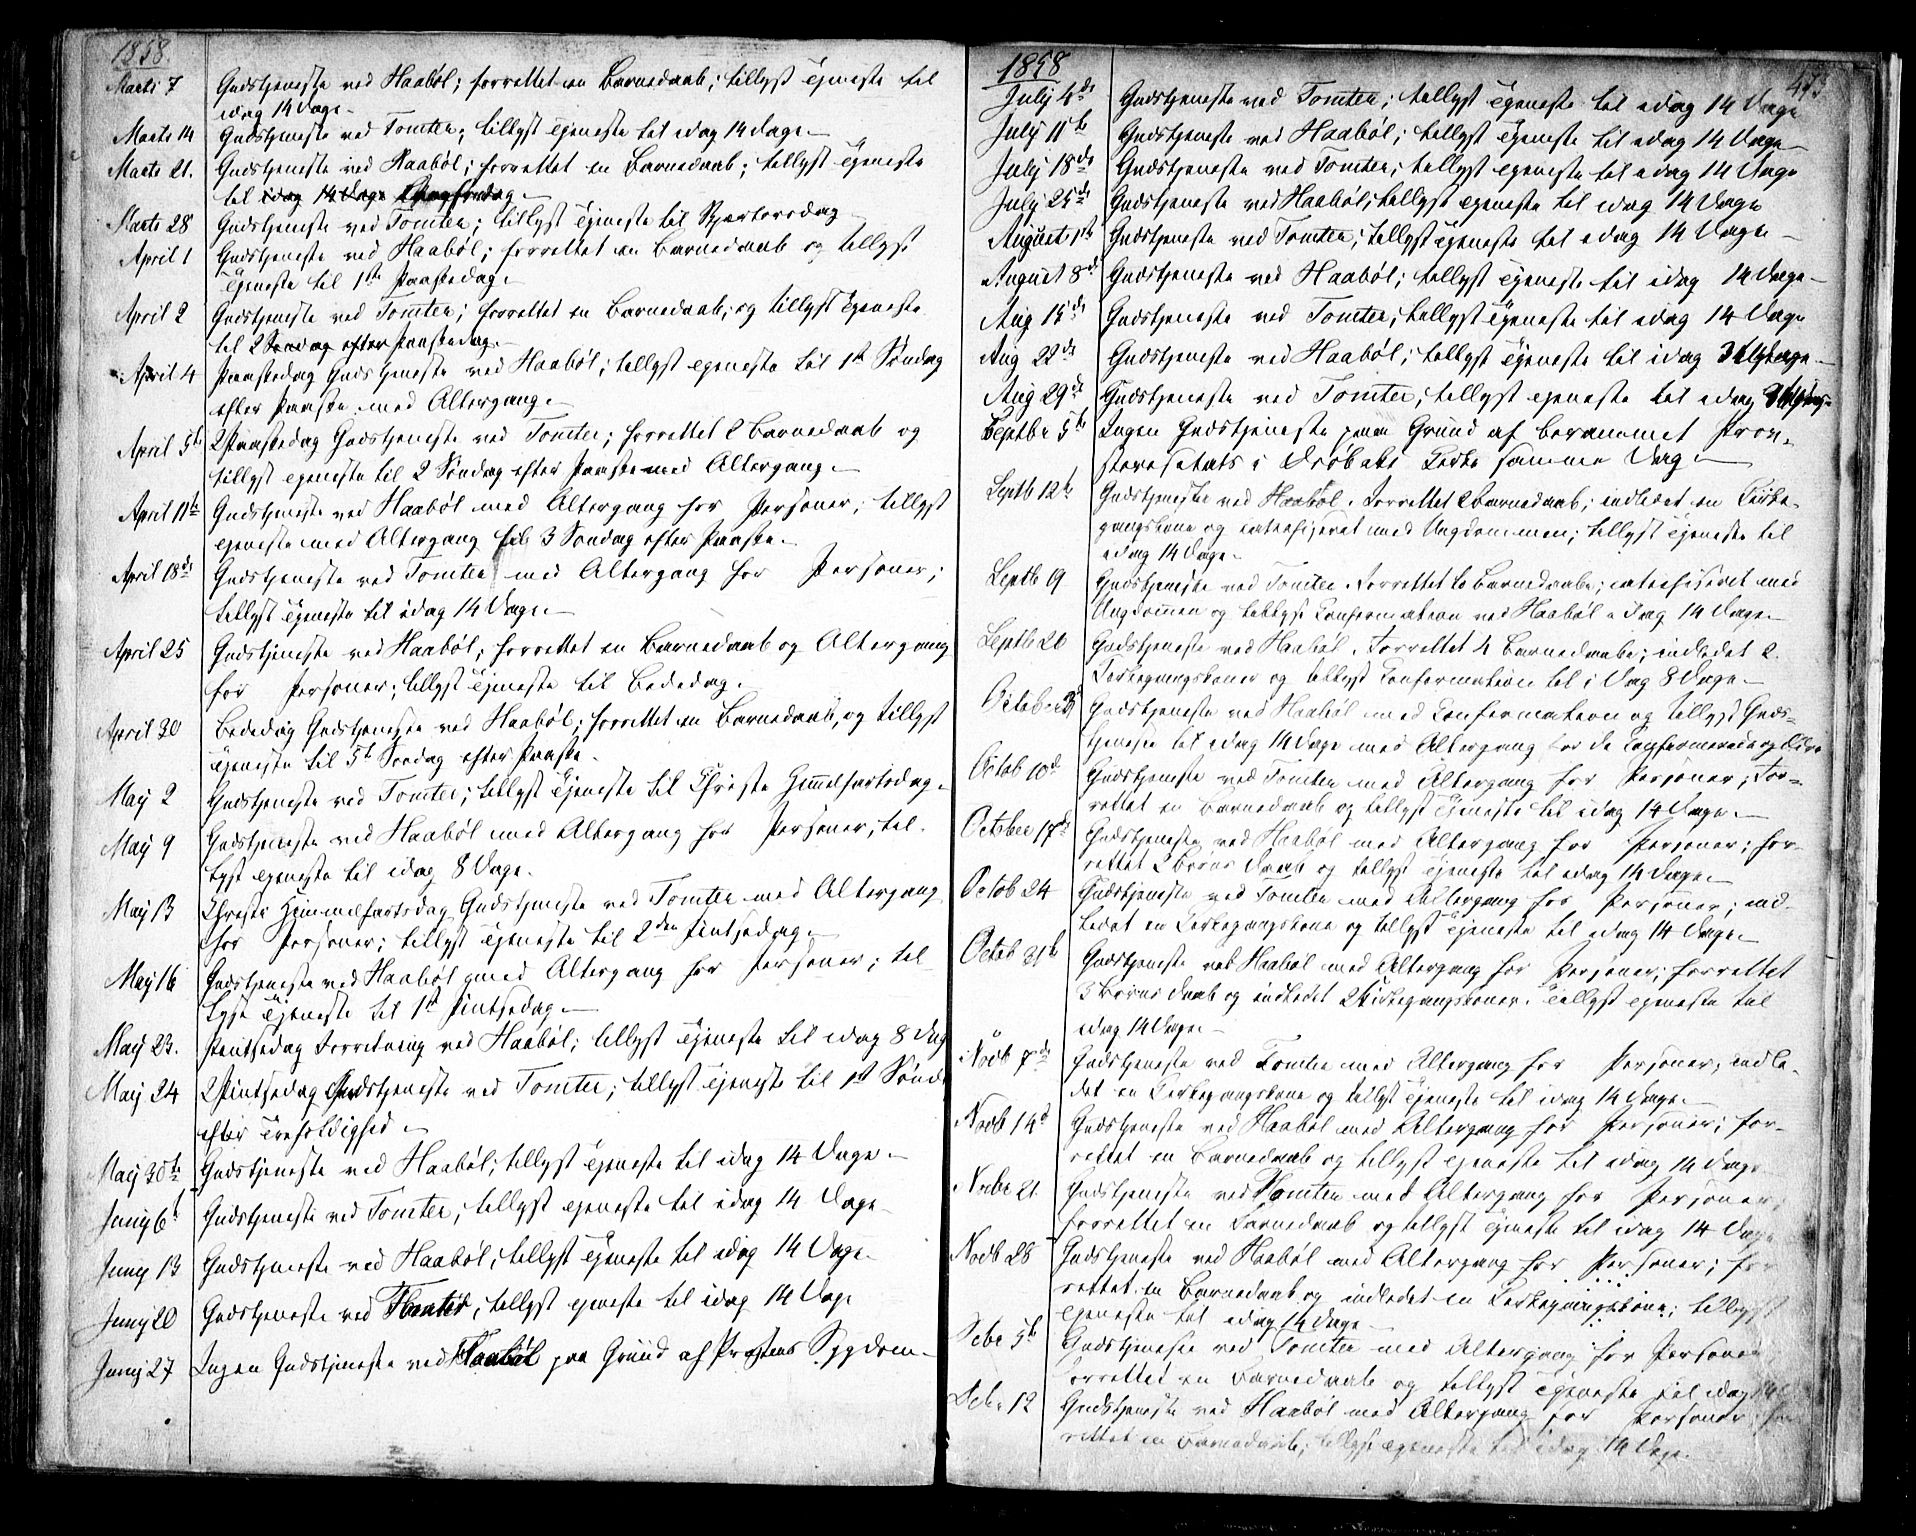 1858.
Marts 7 Gudstjeneste ved Haabøl; forrettet en Barnedaab; tillyst Tjeneste til
idag 14 Dage.
Marts 14 Gudstjeneste ved Tomter; tillyst Tjeneste til idag 14 Dage.
Marts 21. Gudstjeneste ved Haabøl; forrettet en Barnedaab; tillyst Tjeneste
til idag 14 Dage
Marts 28 Gudstjeneste ved Tomter; tillyst Tjeneste til Skjærtorsdag
April 1 Gudstjeneste ved Haabøl; forrettet en Barnedaab og tillyst
Tjeneste til 1ste Paaskedag.
April 2 Gudstjeneste ved Tomter; forrettet en Barnedaab; og tillyst Tjeneste
til 2 Søndag efter Paaskedag.
April 4 Paaskedag Gudstjeneste ved Haabøl; tillyst Tjeneste til 1st Søndag
efter Paaske med Altergang.
April 5te 2 Paaskedag Gudstjeneste ved Tomter; forrettet 2 Barnedaab og
tillyst Tjeneste til 2 Søndag efter Paaske med Altergang.
April 11te Gudstjeneste ved Haabøl med Altergang for Personer; tillyst
Tjeneste med Altergang til 3 Søndag efter Paaske.
April 18de Gudstjeneste ved Tomter med Altergang for Personer;
tillyst Tjeneste til idag 14 Dage.
April 25 Gudstjeneste ved Haabøl; forrettet en Barnedaab og Altergang
for Personer; tillyst Tjeneste til Bededag.
April 30 Bededag Gudstjeneste ved Haabøl; forrettet en Barnedaab, og tillyst
Tjeneste til 5te Søndag efter Paaske.
May 2 Gudstjeneste ved Tomter; tillyst Tjeneste til Christi Himmelfartsdag.
May 9 Gudstjeneste ved Haabøl med Altergang for Personer; til-
lyst Tjeneste til idag 8 Dage.
May 13 Christi Himmelfartsdag Gudstjeneste ved Tomter med Altergang
for Personer; tillyst Tjeneste til 2den Pintsedag.
May 16 Gudstjeneste ved Haabøl med Altergang for Personer; til-
lyst Tjeneste til 1st Pintsedag.
May 23. Pintsedag Forretning ved Haabøl; tillyst Tjeneste til idag 8 Dag
May 24 2 Pintsedag Gudstjeneste ved Tomter; tillyst Tjeneste til 1st Sønd.
efter Trefoldighed
May 30te Gudstjeneste ved Haabøl; tillyst Tjeneste til idag 14 Dage.
Juny 6t Gudstjeneste ved Tomter; tillyst Tjeneste til idag 14 Dage.
Juny 13 Gudstjeneste ved Haabøl; tillyst Tjeneste til idag 14 Dage.
Juny 20 Gudstjeneste ved Tomter; tillyst Tjeneste til idag 14 Dage
Juny 27 Ingen Gudstjeneste ved Haabøl paa Grund af Præstens Sygdom.
1858
July 4de Gudstjeneste ved Tomter; tillyst Tjeneste til idag 14 Dage
July 11te Gudstjeneste ved Haabøl; tillyst Tjeneste til idag 14 Dage
July 18de Gudstjeneste ved Tomter; tillyst Tjeneste til idag 14 Dage
July 25de Gudstjeneste ved Haabøl; tillyst Tjeneste til idag 14 Dage
August 1ste Gudstjeneste ved Tomter; tillyst Tjeneste til idag 14 Dage.
August 8de Gudstjeneste ved Haabøl; tillyst Tjeneste til idag 14 Dage.
Aug 15de Gudstjeneste ved Tomter; tillyst Tjeneste til idag 14 Dage
Aug 22de Gudstjeneste ved Haabøl; tillyst Tjeneste til idag 3 Uger.
Aug 29de Gudstjeneste ved Tomter; tillyst Tjeneste til idag
Septbr 5te Ingen Gudstjeneste paa Grund af berammet Prov-
stevisitats i Drøbaks Kirke samme Dag.
Septb 12te Gudstjeneste ved Haabøl. Forrettet 2 Barnedaab; indledet en Kirke-
gangskone og catechiseret med Ungdommen; tillyst Tjeneste til
idag 14 Dage.
Septb 19 Gudstjeneste ved Tomter. Forrettet to Barnedaabe; catechiseret med
Ungdommen og tillyst Confirmation ved Haabøl i Dag 14 Dage.
Septb 26 Gudstjeneste ved Haabøl. Forrettet 4 Barnedaabe; indledet 2
Kirkegangskoner og tillyst Confirmation til i Dag 8 Dage.
October 3 Gudstjeneste ved Haabøl med Confirmation og tillyst Guds-
tjeneste til idag 14 Dage med Altergang for de Confirmerede og
Octob 10d Gudstjeneste ved Tomter med Altergang for Personer; for-
rettet en Barnedaab og tillyst Tjeneste til idag 14 Dage.
October 17de Gudstjeneste ved Haabøl med Altergang for Personer; for-
rettet 2 Børns Daab og tillyst Tjeneste til idag 14 Dage.
Octob 24 Gudstjeneste ved Tomter med Altergang for Personer; ind-
ledet en Kirkegangskone og tillyst Tjeneste til idag 14 Dage.
Octob 31te Gudstjeneste ved Haabøl med Altergang for Personer; forrettet
3 Børns Daab og indledet 2 Kirkegangskoner. Tillyst Tjeneste til
idag 14 Dage.
Novb 7de Gudstjeneste ved Tomter med Altergang for Personer; indle-
det en Kirkegangskone og tillyst Tjeneste til idag 14 Dage.
Novb 14d Gudstjeneste ved Haabøl med Altergang for Personer; for-
rettet en Barnedaab og tillyst Tjeneste til idag 14 Dage
Novbr 21. Gudstjeneste ved Tomter med Altergang for Personer,
forrettet en Barnedaab og tillyst Tjeneste til idag 14 Dage
Novb 28 Gudstjeneste ved Haabøl med Altergang for Personer; for
rettet en Barnedaab og indledet en Kirkegangskone; tillyst
Tjeneste til idag 14 Dage.
Debr 5te Gudstjeneste ved Tomter med Altergang for Personer
forrettet en Barnedaab og tillyst Tjeneste til idag 14
Debr 12 Gudstjeneste ved Haabøl med Altergang for Personer; for
rettet en Barnedaab; tillyst Tjeneste til idag 14 Dage.